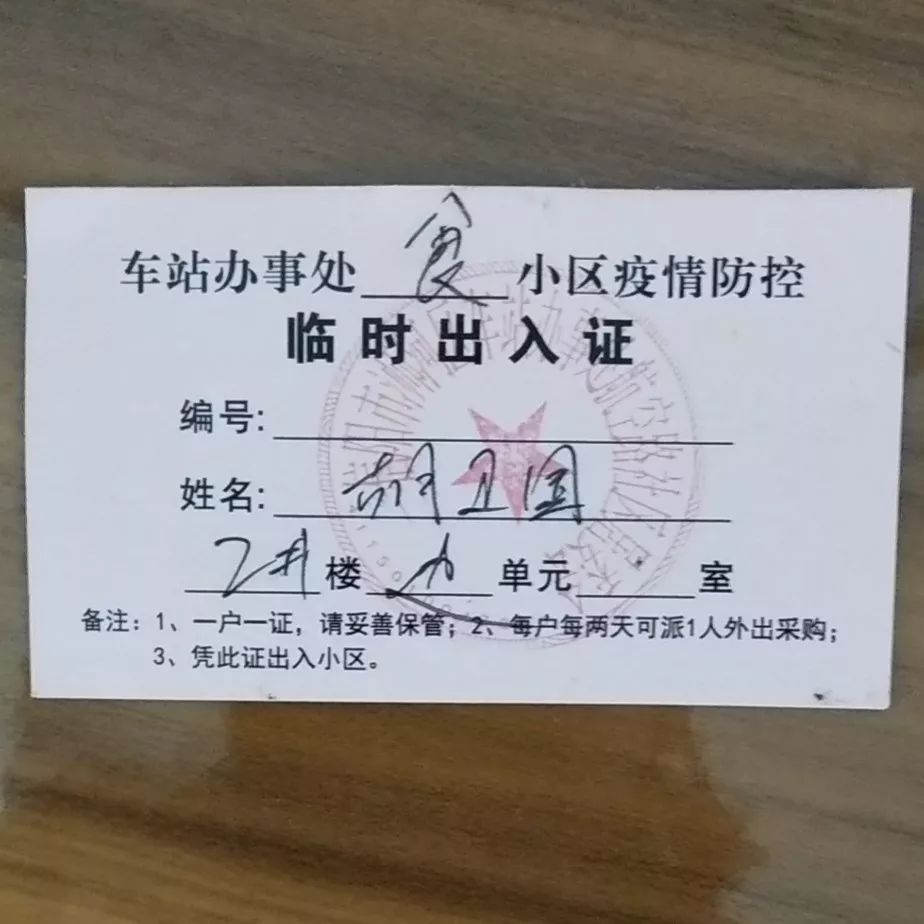 车站办事处 食 小区疫情防控
临时出入证
编号:
姓名: 胡卫国
2#楼 单元 室
备注：1、一户一证，请妥善保管；2、每户每两天可派1人外出采购；
3、凭此证出入小区。